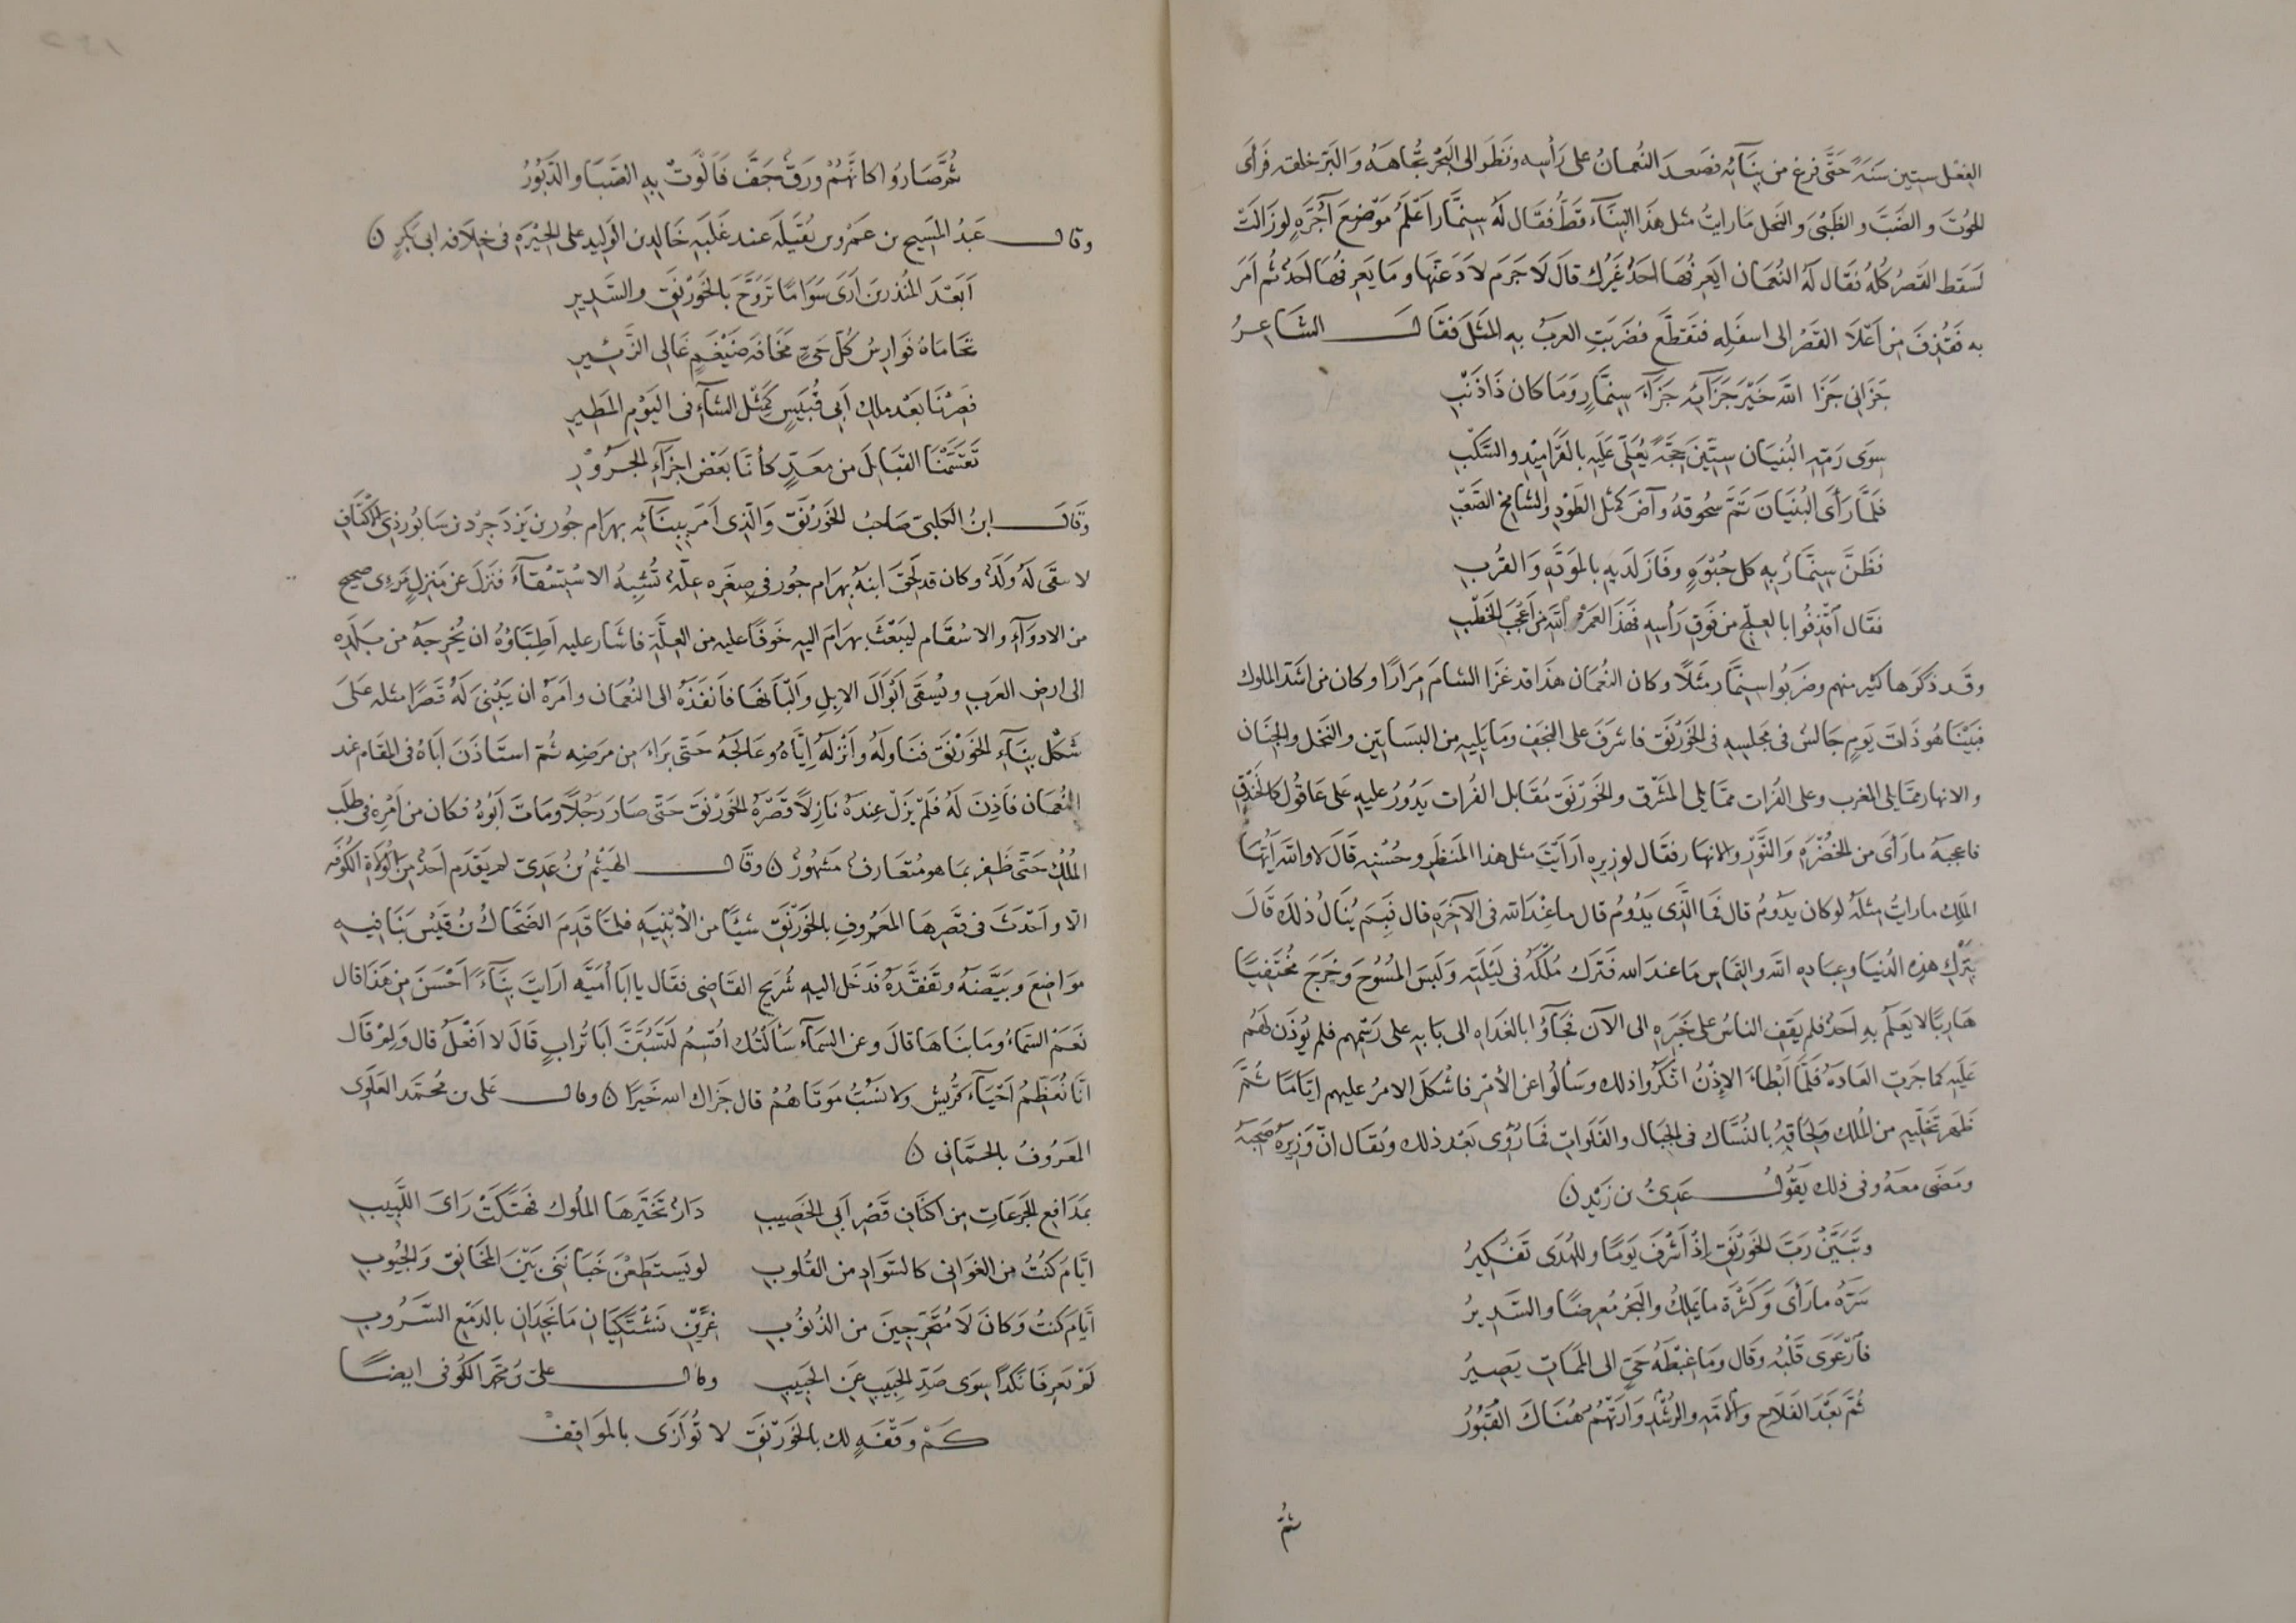 الفعل ستين سنة حتى فرغ من بنائه فصعد النعمان على رأسه ونظر الى البحر تجاهه والبر خلفه فرأى
الحوت والضب والظبي والنخل ما رايت مثل هذا البناء قط فقال له سنمار اعلم موضع آجرة لو زالت
لسقط القصر كله فقال له النعمان ايعرفها احد غيرك قال لا جرم لادعنها وما يعرفها احد ثم امر
به فقذف من اعلا القصر الى اسفله فتقطع فضربت العرب به المثل فقال الشاعر
جزاني جزا الله خير جزائه جزآء سنمار وما كان ذا ذنب
سوى رمه البنيان ستين حجة يعلى عليه بالقراميد والسكب
فلما رأى البنيان تم سحوقه وآض كمثل الطود والشامخ الصعب
فظن سنمار به كل حبوة وفاز لديه بالمودة والقرب
فقال اقذفوا بالعلج من فوق رأسه فهذا لعمر الله من اعجب الخطب
وقد ذكرها كثير منهم وضربوا سنمار مثلا وكان النعمان هذا قد غزا الشام مرارا وكان من اشد الملوك
فبينا هو ذات يوم جالس في مجلسه في الخورنق فاشرف على النجف وما يليه من البساتين والنخل والجنان
والانهار مما يلي المغرب وعلى الفرات مما يلي المشرق والخورنق مقابل الفرات يدور عليه على عاقول كالخندق
فاعجبه ما رأى من الخضرة والنور والانهار فقال لوزيره ارايت مثل هذا المنظر وحسنه قال لا والله ايها
الملك ما رايت مثله لو كان يدوم قال فما الذي يدوم قال ما عند الله في الآخرة قال فبم ينال ذلك قال
بترك هذه الدنيا وعبادة الله والتماس ما عند الله فترك ملكه في ليلته ولبس المسوح وخرج مختفيا
هاربا لا يعلم به احد فلم يقف الناس على خبره الى الآن فجآؤا بالغداه الى بابه على رسمهم فلم يؤذن لهم
عليه كما جرت العادة فلما ابطاء الاذن انكروا ذلك وسألوا عن الأمر فاشكل الامر عليهم اياما ثم
ظهر تخليه من الملك ولحاقه بالنساك في الجبال والفلوات فما رؤى بعد ذلك ويقال ان وزيره صحبه
ومضى معه وفي ذلك يقول عدي بن زيد ن
وتبين رب الخورنق اذ أشرف يوما وللهدى تفكير
سره ما رأى وكثرة ما يملك والبحر معرضا والسدير
فارعوى قلبه وقال وما غبطة حي الى الممات يصير
ثم بعد الفلاح والامه والرشد وارتهم هناك القبور
ثم
ثم صاروا كانهم ورق جف فالوت به الصبا والدبور
وقال عبد المسيح بن عمرو بن بقيلة عند غلبه خالد بن الوليد على الحيرة في خلافة ابي بكر ن
ابعد المنذرين ارى سواما تروح بالخورنق والسدير
تحاماه فوارس كل حي مخافة ضيغم عالي الزئير
فصرنا بعد ملك ابي قبيس كمثل الشاء في اليوم المطير
تقسمنا القبايل من معد كأنا بعض اجزاء الجزور
وقال ابن الكلبي صاحب الخورنق والذي امر ببنائه بهرام جور بن يزدجرد بن سابور ذي الاكتاف
لا يبقى له ولد وكان قد لحق ابنه بهرام جور في صغره علة تشبه الاستسقاء فنزل عن منزل مريء صحيح
من الادوآء والاسقام ليبعث بهرام اليه خوفا عليه من العلة فاشار عليه اطباؤه ان يخرجه من بلده
الى ارض العرب ويسقى ابوال الابل والبانها فانفذه الى النعمان وامره ان يبنى له قصرا مثله على
شكل بنآء الخورنق فناوله وانزله اياه وعالجه حتى براء من مرضه ثم استاذن اباه في المقام عند
النعمان فاذن له فلم يزل عنده نازلا قصره الخورنق حتى صار رجلا ومات ابوه فكان من امره في طلب
الملك حتى ظفر بما هو متعارف مشهور ن وقال الهيثم بن عدي لم يقدم احد من الولاة الكوفة
الا واحدث في قصرها المعروف بالخورنق شيئا من الأبنية فلما قدم الضحاك بن قيس بنا فيه
مواضع وبيضه وتفقده فدخل اليه شريح القاضي فقال يا ابا أمية ارايت بنآء احسن من هذا قال
نعم السماء وما بناها قال وعن السماء سألتك اقسم لتسبن أبا تراب قال لا افعل قال ولم قال
انا نعظم احيآء قريش ولا نسب موتاهم قال جزاك الله خيرا ن وقال على بن محمد العلوى
المعروف بالحماني ن
بمدافع الجرعات من اكناف قصر أبي الخصيب دار تخيرها الملوك فهتكت راى اللبيب
ايام كنت من الغواني كالسواد من القلوب لو يستطعن خبانني بين المخانق والجيوب
ايام كنت وكان لا متحرجين من الذنوب غرين تشتكيان ما تجدان بالدمع السروب
لم يعرفا نكدا سوى صد الحبيب عن الحبيب وقال على بن محمد الكوفي ايضا
كم وقفة لك بالخورنق لا توازى بالمواقف